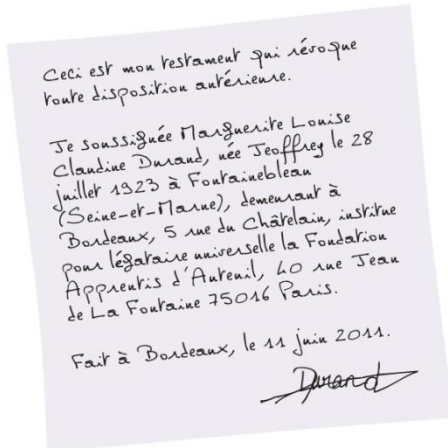 Ceci est mon testament qui révoque
toute disposition antérieure.
Je soussignée Marguerite Louise
Claudine Durand, née Jeoffrey le 28
juillet 1923 à Fontainebleau
(Seine-et-Marne), demeurant à
Bordeaux, 5 rue du Châtelain, institue
pour légataire universelle la Fondation
Apprentis d'Auteuil, 40 rue Jean
de La Fontaine 75016 Paris.
Fait à Bordeaux, le 11 juin 2011.
Durand